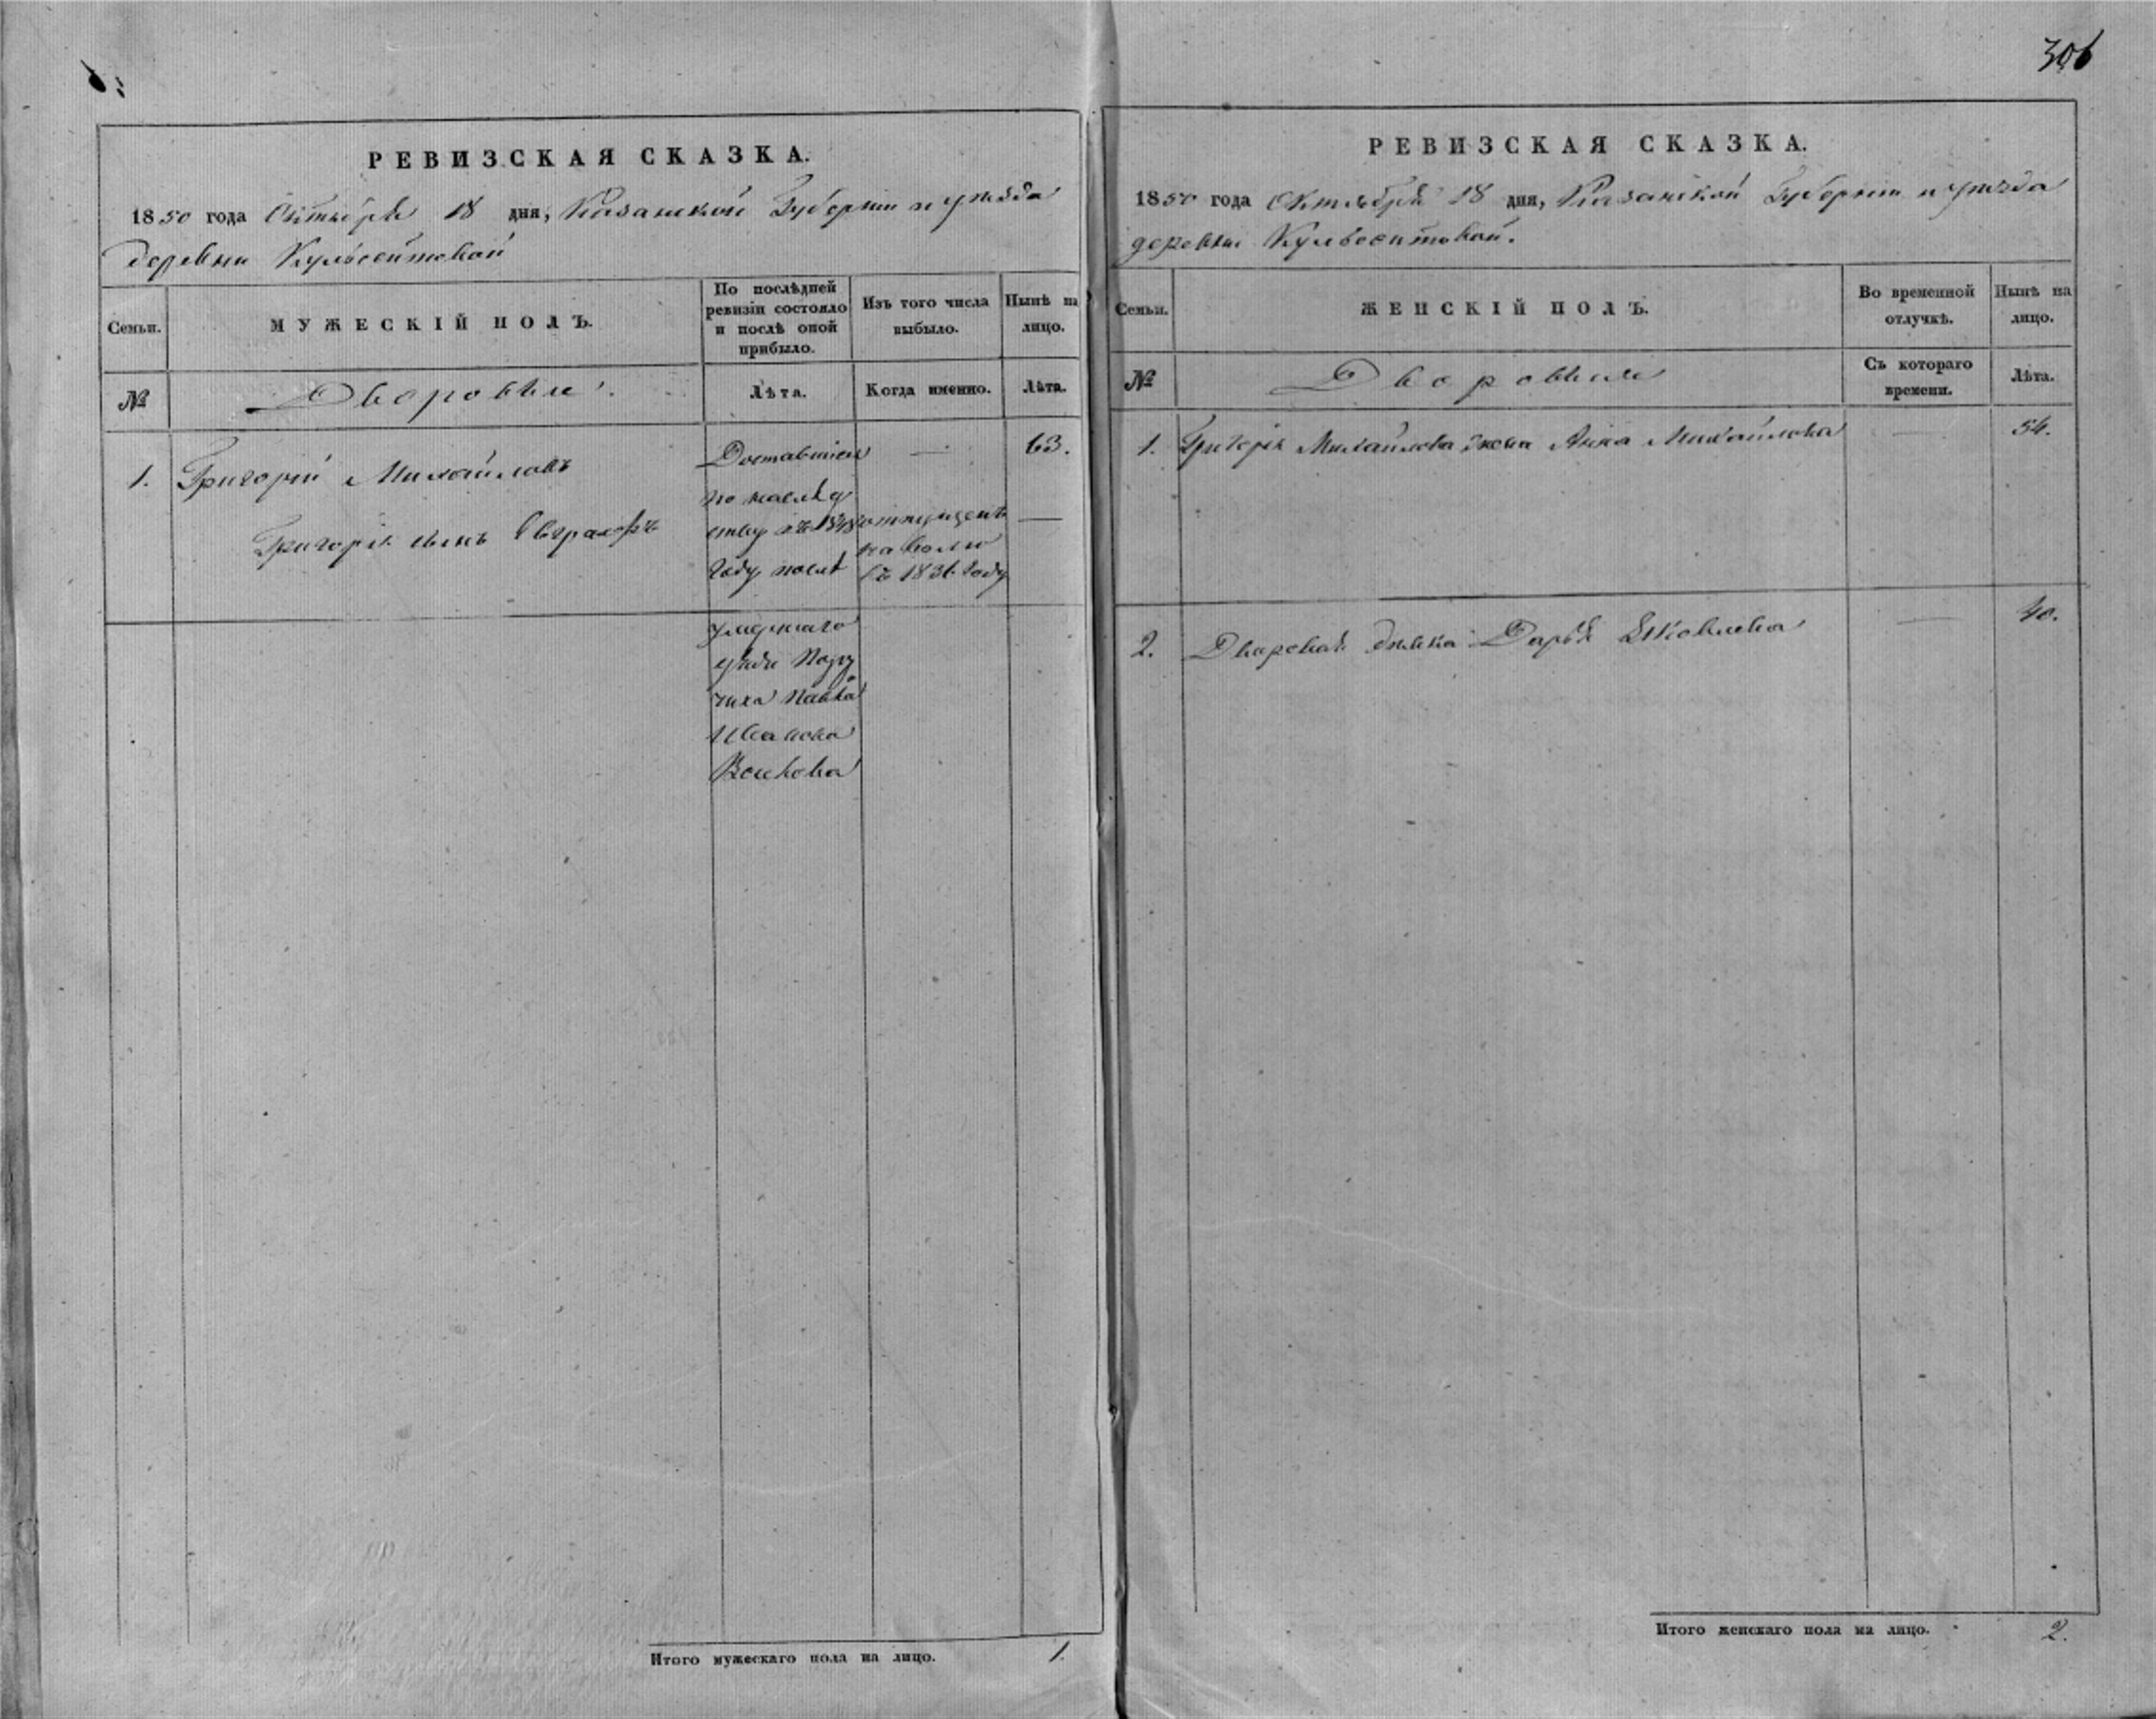 306
РЕВИЗСКАЯ СКАЗКА.
1850 года Октября 18 дня, Казанской Губернии и уѣзда
деревни Кульсеитовой
Семьи.
МУЖЕСКІЙ ПОЛЪ.
По послѣдней
ревизіи состояло
и послѣ оной
прибыло.
Изъ того числа
выбыло.
Нынѣ на
лицо.
№
Дворовые
Лѣта.
Когда именно.
Лѣта.
1. Григорій Михайловъ
Григорія сынъ Евграфъ
Доставшіеся
по наслѣд
ству въ
году послѣ
умершаго
дяди Пору
чика Павла
Иванова
— 63.
отпущенъ —
на волю
въ 1836 году
Итого мужескаго пола на лицо. 1.
РЕВИЗСКАЯ СКАЗКА.
1850 года Октября 18 дня, Казанской Губерніи и уѣзда
деревни Кульсеитовой.
Семьи.
ЖЕНСКІЙ ПОЛЪ.
Во временной
отлучкѣ.
Нынѣ на
лицо.
№
Дворовыя
Съ котораго
времени.
Лѣта.
1. Григорія Михайлова жена Анна Михайлова — 54.
2. Дворовая дѣвка Дарья Яковлева — 40.
Итого женскаго пола на лицо. 2.